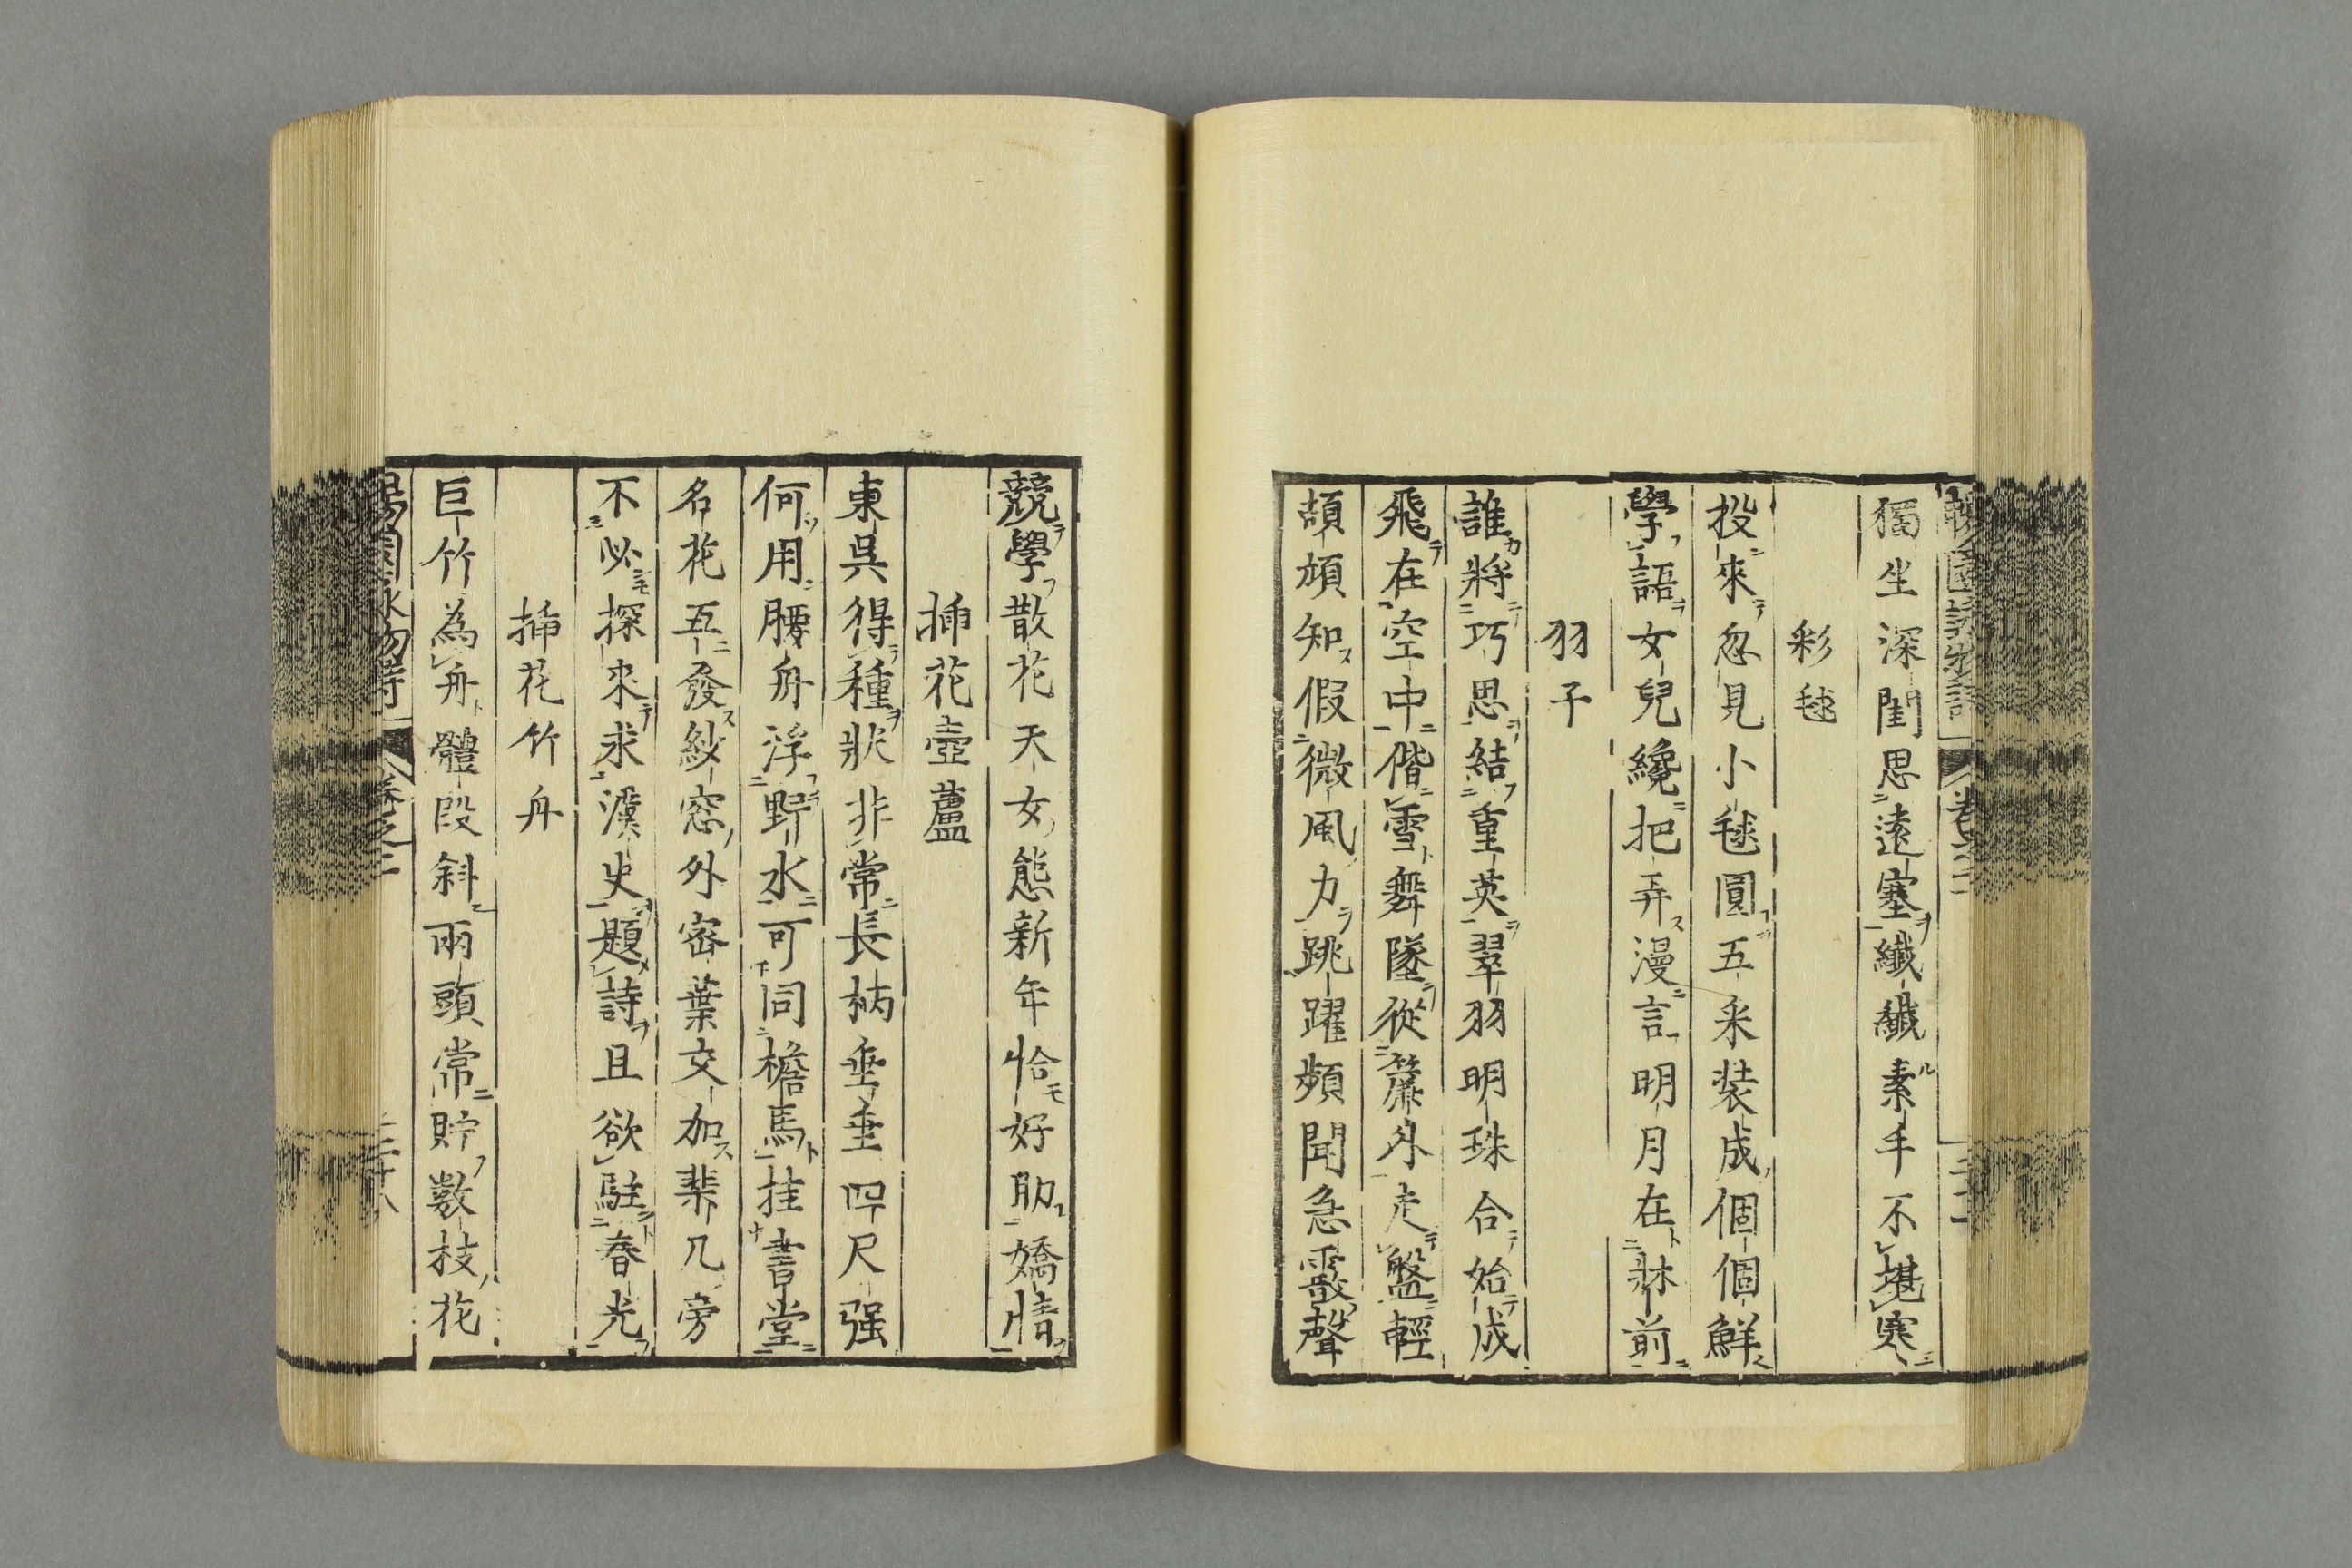 獨坐深閨思遠塞纖纖素手不堪寒
彩毬
投來忽見小毬圓五釆裝成個個鮮
學語女兒纔把弄漫言明月在牀前
羽子
誰將巧思結重英翠羽明珠合始成
飛在空中偕雪舞墜從簾外走盤輕
頡頏知假微風力跳躍頻聞急霰聲
競學散花天女態新年恰好助嬌情
插花壺蘆
東吳得種狀非常長柄垂垂四尺强
何用腰舟浮野水可同檐馬挂書堂
名花五發紗窓外密葉交加棐几旁
不必探來求濮史題詩且欲駐春光
插花竹舟
巨竹為舟體段斜兩頭常貯數枝花
卷之二